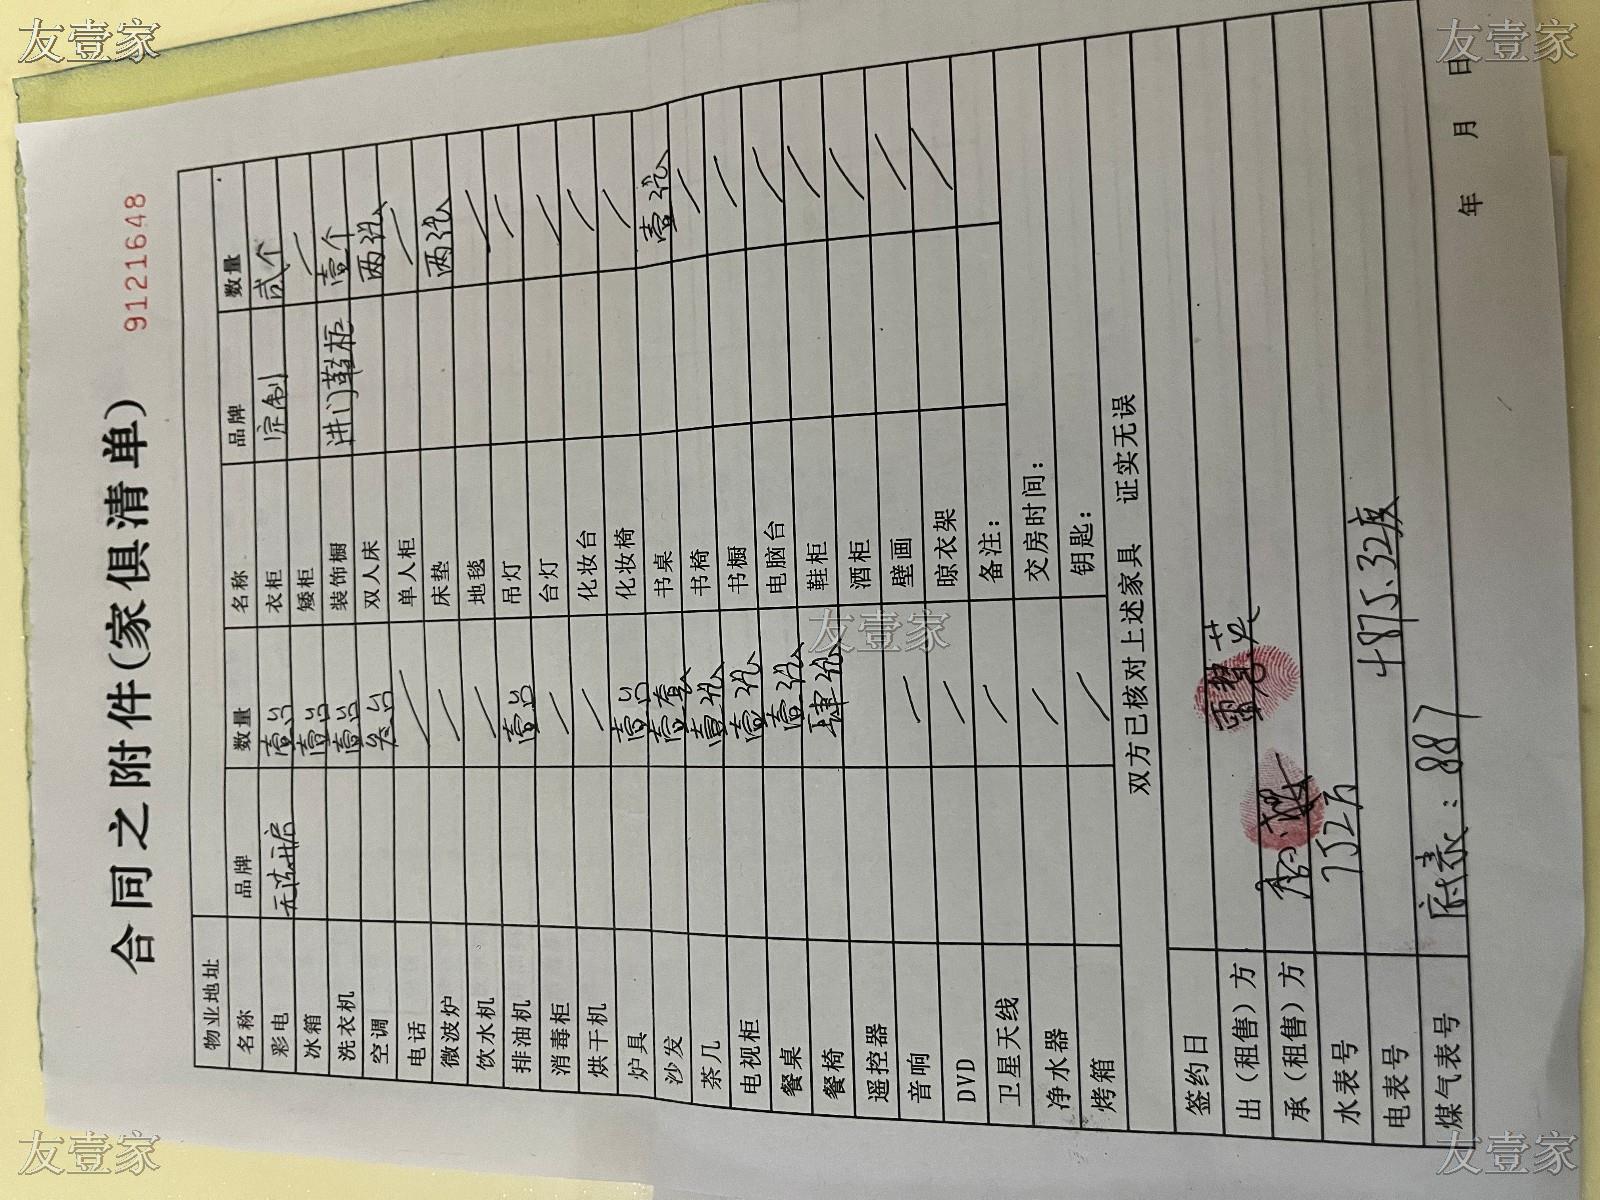 合同之附件(家俱清单)
9121648
物业地址
名称 品牌 数量 名称 品牌 数量
彩电 无法开启 壹台 衣柜 定制 贰个
冰箱 壹台 矮柜 /
洗衣机 壹台 装饰橱 进门鞋柜 壹个
空调 叁台 双人床 两张
电话 / 单人柜 /
微波炉 / 床垫 两张
饮水机 / 地毯 /
排油机 壹台 吊灯 /
消毒柜 / 台灯 /
烘干机 / 化妆台 /
炉具 壹台 化妆椅 /
沙发 壹套 书桌 壹张
茶几 壹张 书椅 /
电视柜 壹张 书橱 /
餐桌 壹张 电脑台 /
餐椅 肆张 鞋柜 /
遥控器 酒柜 /
音响 / 壁画 /
DVD / 晾衣架 /
卫星天线 / 备注:
净水器 / 交房时间:
烤箱 / 钥匙:
双方已核对上述家具 证实无误
签约日
出(租售)方
承(租售)方
水表号 752方
电表号 4875.32度
煤气表号 底表:887
年 月 日
友壹家
友壹家
友壹家
友壹家
友壹家